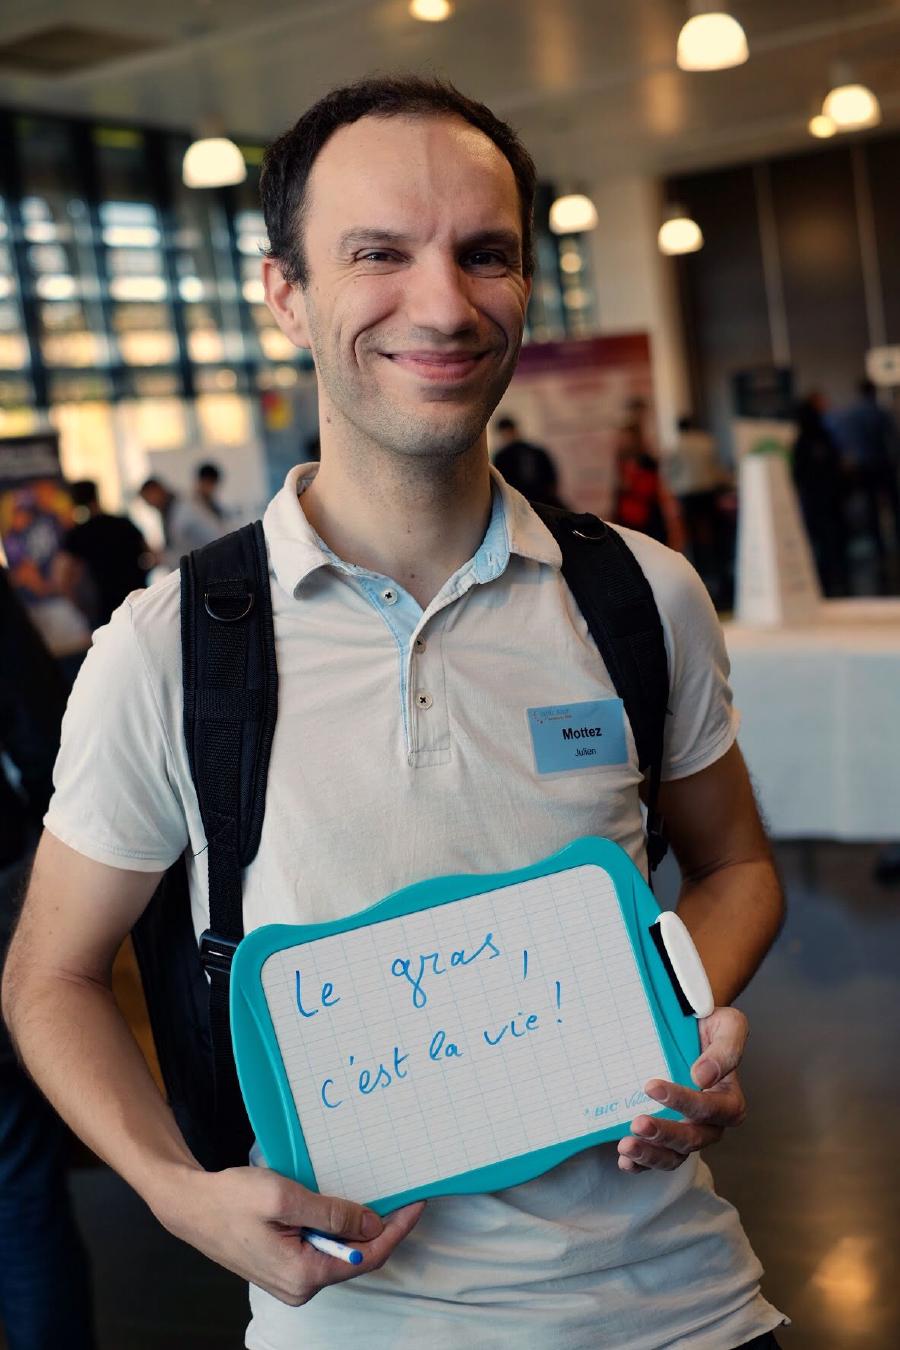 Mottez
Julien
Le gras,
c'est la vie !
BIC